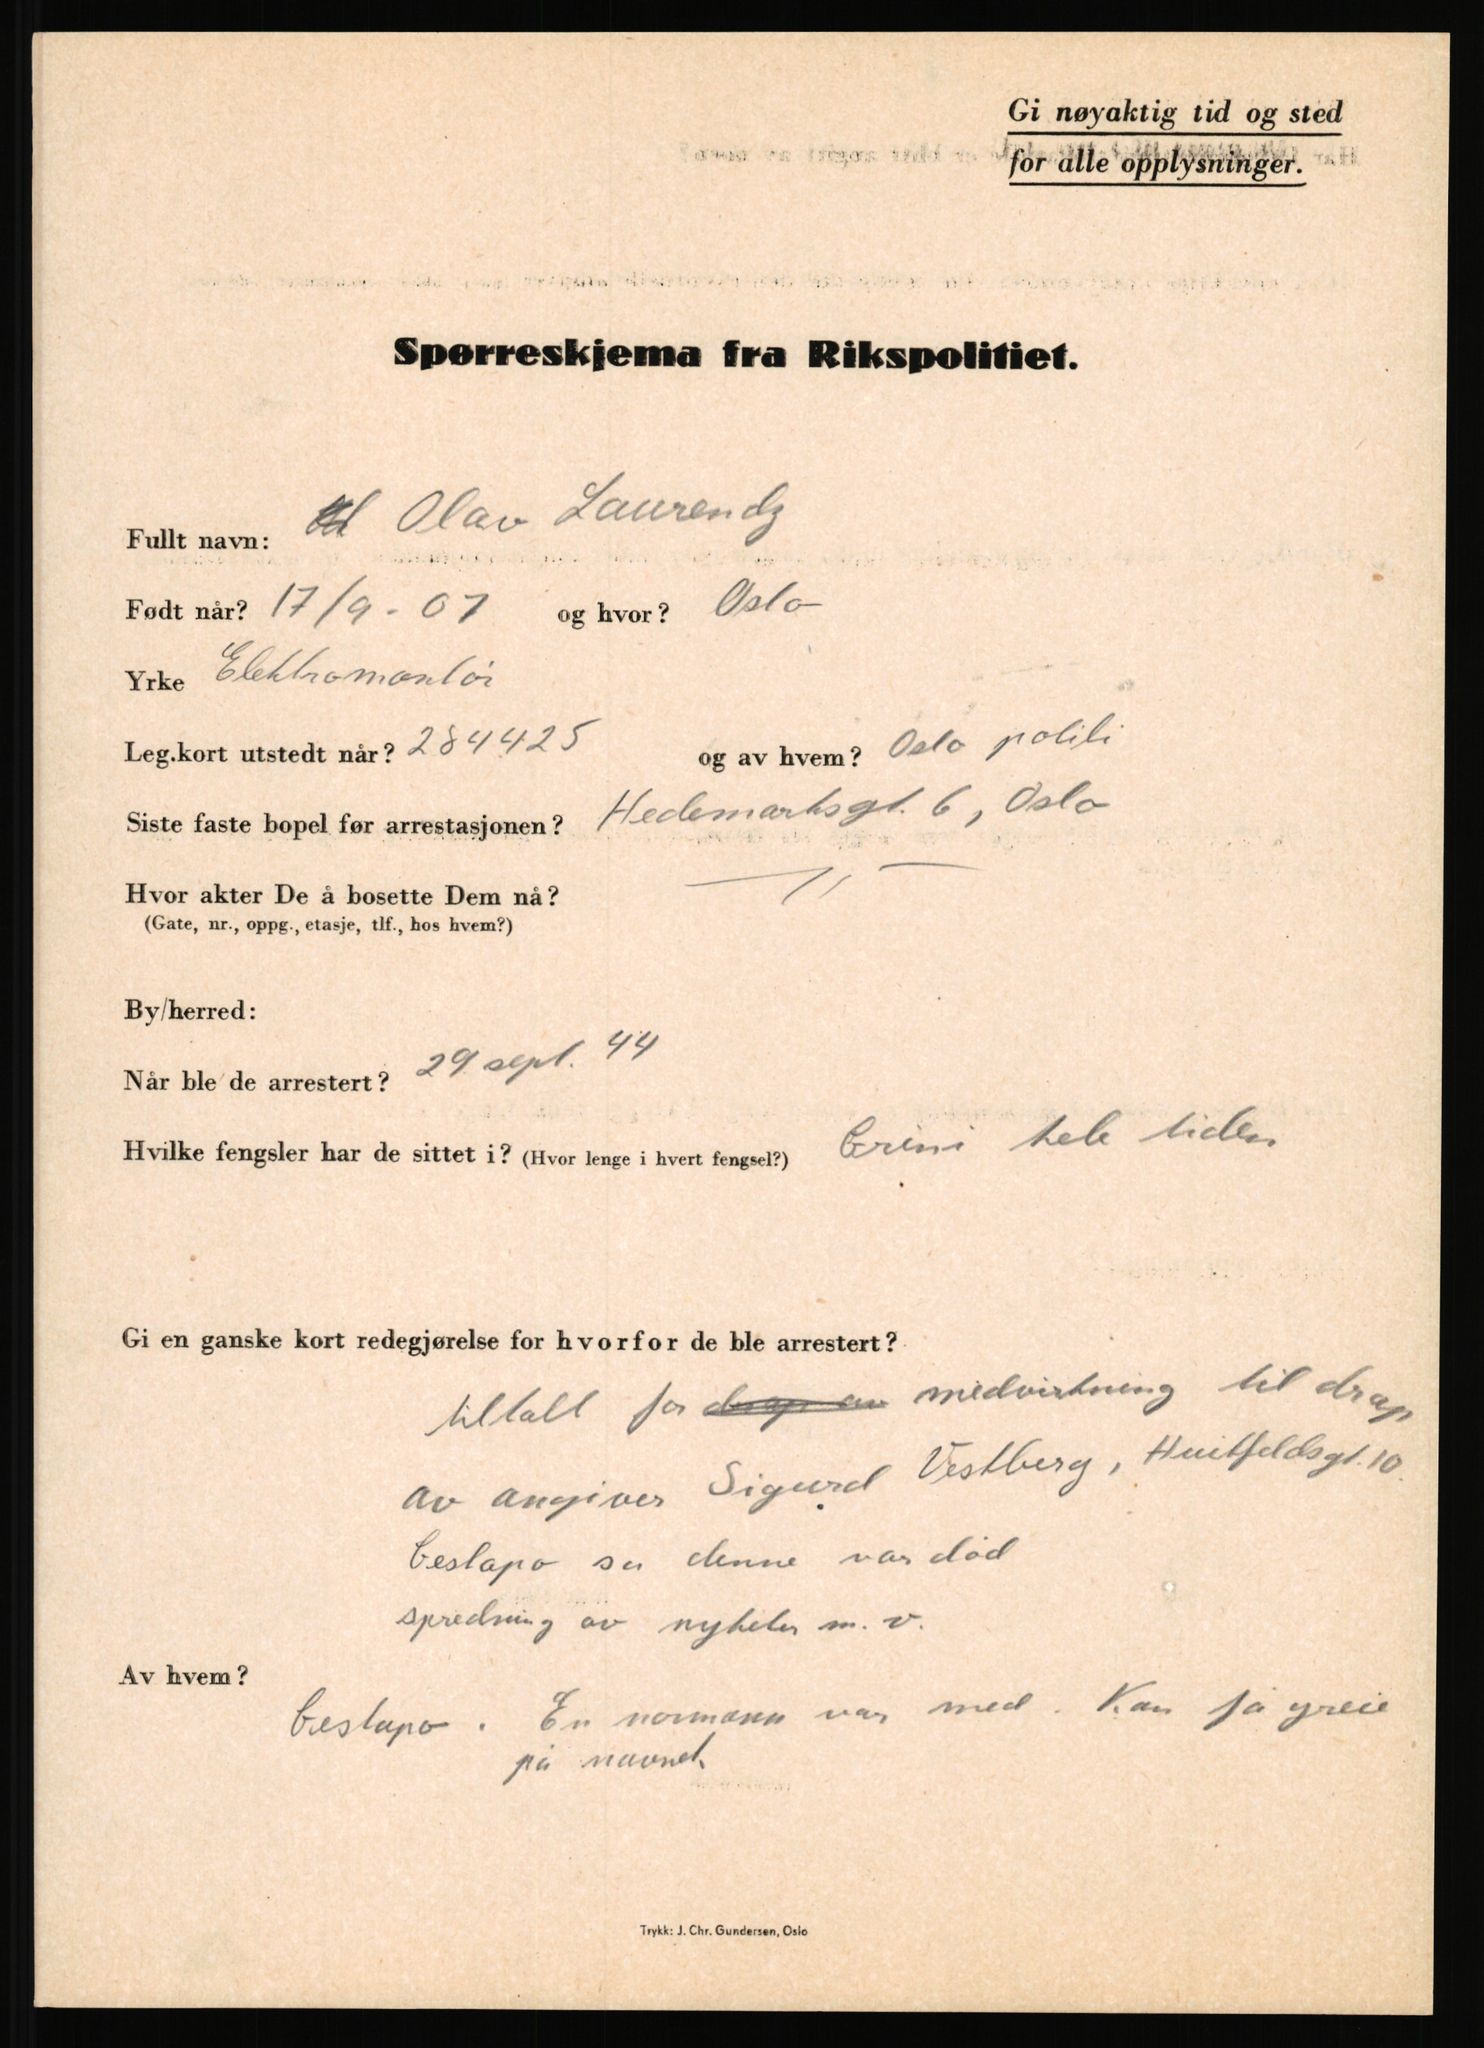 Gi nøyaktig tid og sted
for alle opplysninger.
Spørreskjema fra Rikspolitiet.
Fullt navn: Olav Laurendz
Født når? 17/9-07 og hvor? Oslo
Yrke Elektromontör
Leg.kort utstedt når? 284425 og av hvem? Oslo politi
Siste faste bopel før arrestasjonen? Hedemarksgt. 6, Oslo
Hvor akter De å bosette Dem nå? — " —
(Gate, nr., oppg., etasje, tlf., hos hvem?)
By/herred:
Når ble de arrestert? 29 sept. 44
Hvilke fengsler har de sittet i? (Hvor lenge i hvert fengsel?) Grini hele tiden
Gi en ganske kort redegjørelse for hvorfor de ble arrestert?
tiltalt for drap av medvirkning til drap
av angiver Sigurd Vestberg, Huitfeldsgt. 10.
Gestapo sa denne var död
spredning av nyheter m. v.
Av hvem?
Gestapo. En normann var med. Kan få greie
på navnet.
Trykk: J. Chr. Gundersen, Oslo